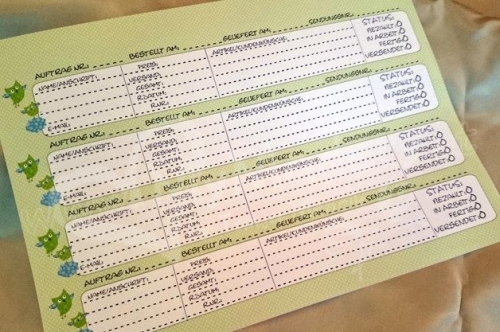 AUFTRAG NR.: BESTELLT AM: GELIEFERT AM: SENDUNGSNR.: STATUS:
NAME/ANSCHRIFT: PREIS: ARTIKEL/KUNDENWÜNSCHE: BEZAHLT:
VERSAND: IN ARBEIT:
GESAMT: FERTIG:
R.DATUM: VERSENDET:
E-MAIL: R.NR.:
AUFTRAG NR.: BESTELLT AM: GELIEFERT AM: SENDUNGSNR.: STATUS:
NAME/ANSCHRIFT: PREIS: ARTIKEL/KUNDENWÜNSCHE: BEZAHLT:
VERSAND: IN ARBEIT:
GESAMT: FERTIG:
R.DATUM: VERSENDET:
E-MAIL: R.NR.:
AUFTRAG NR.: BESTELLT AM: GELIEFERT AM: SENDUNGSNR.: STATUS:
NAME/ANSCHRIFT: PREIS: ARTIKEL/KUNDENWÜNSCHE: BEZAHLT:
VERSAND: IN ARBEIT:
GESAMT: FERTIG:
R.DATUM: VERSENDET:
E-MAIL: R.NR.:
AUFTRAG NR.: BESTELLT AM: GELIEFERT AM: SENDUNGSNR.: STATUS:
NAME/ANSCHRIFT: PREIS: ARTIKEL/KUNDENWÜNSCHE: BEZAHLT:
VERSAND: IN ARBEIT:
GESAMT: FERTIG:
R.DATUM: VERSENDET:
R.NR.: